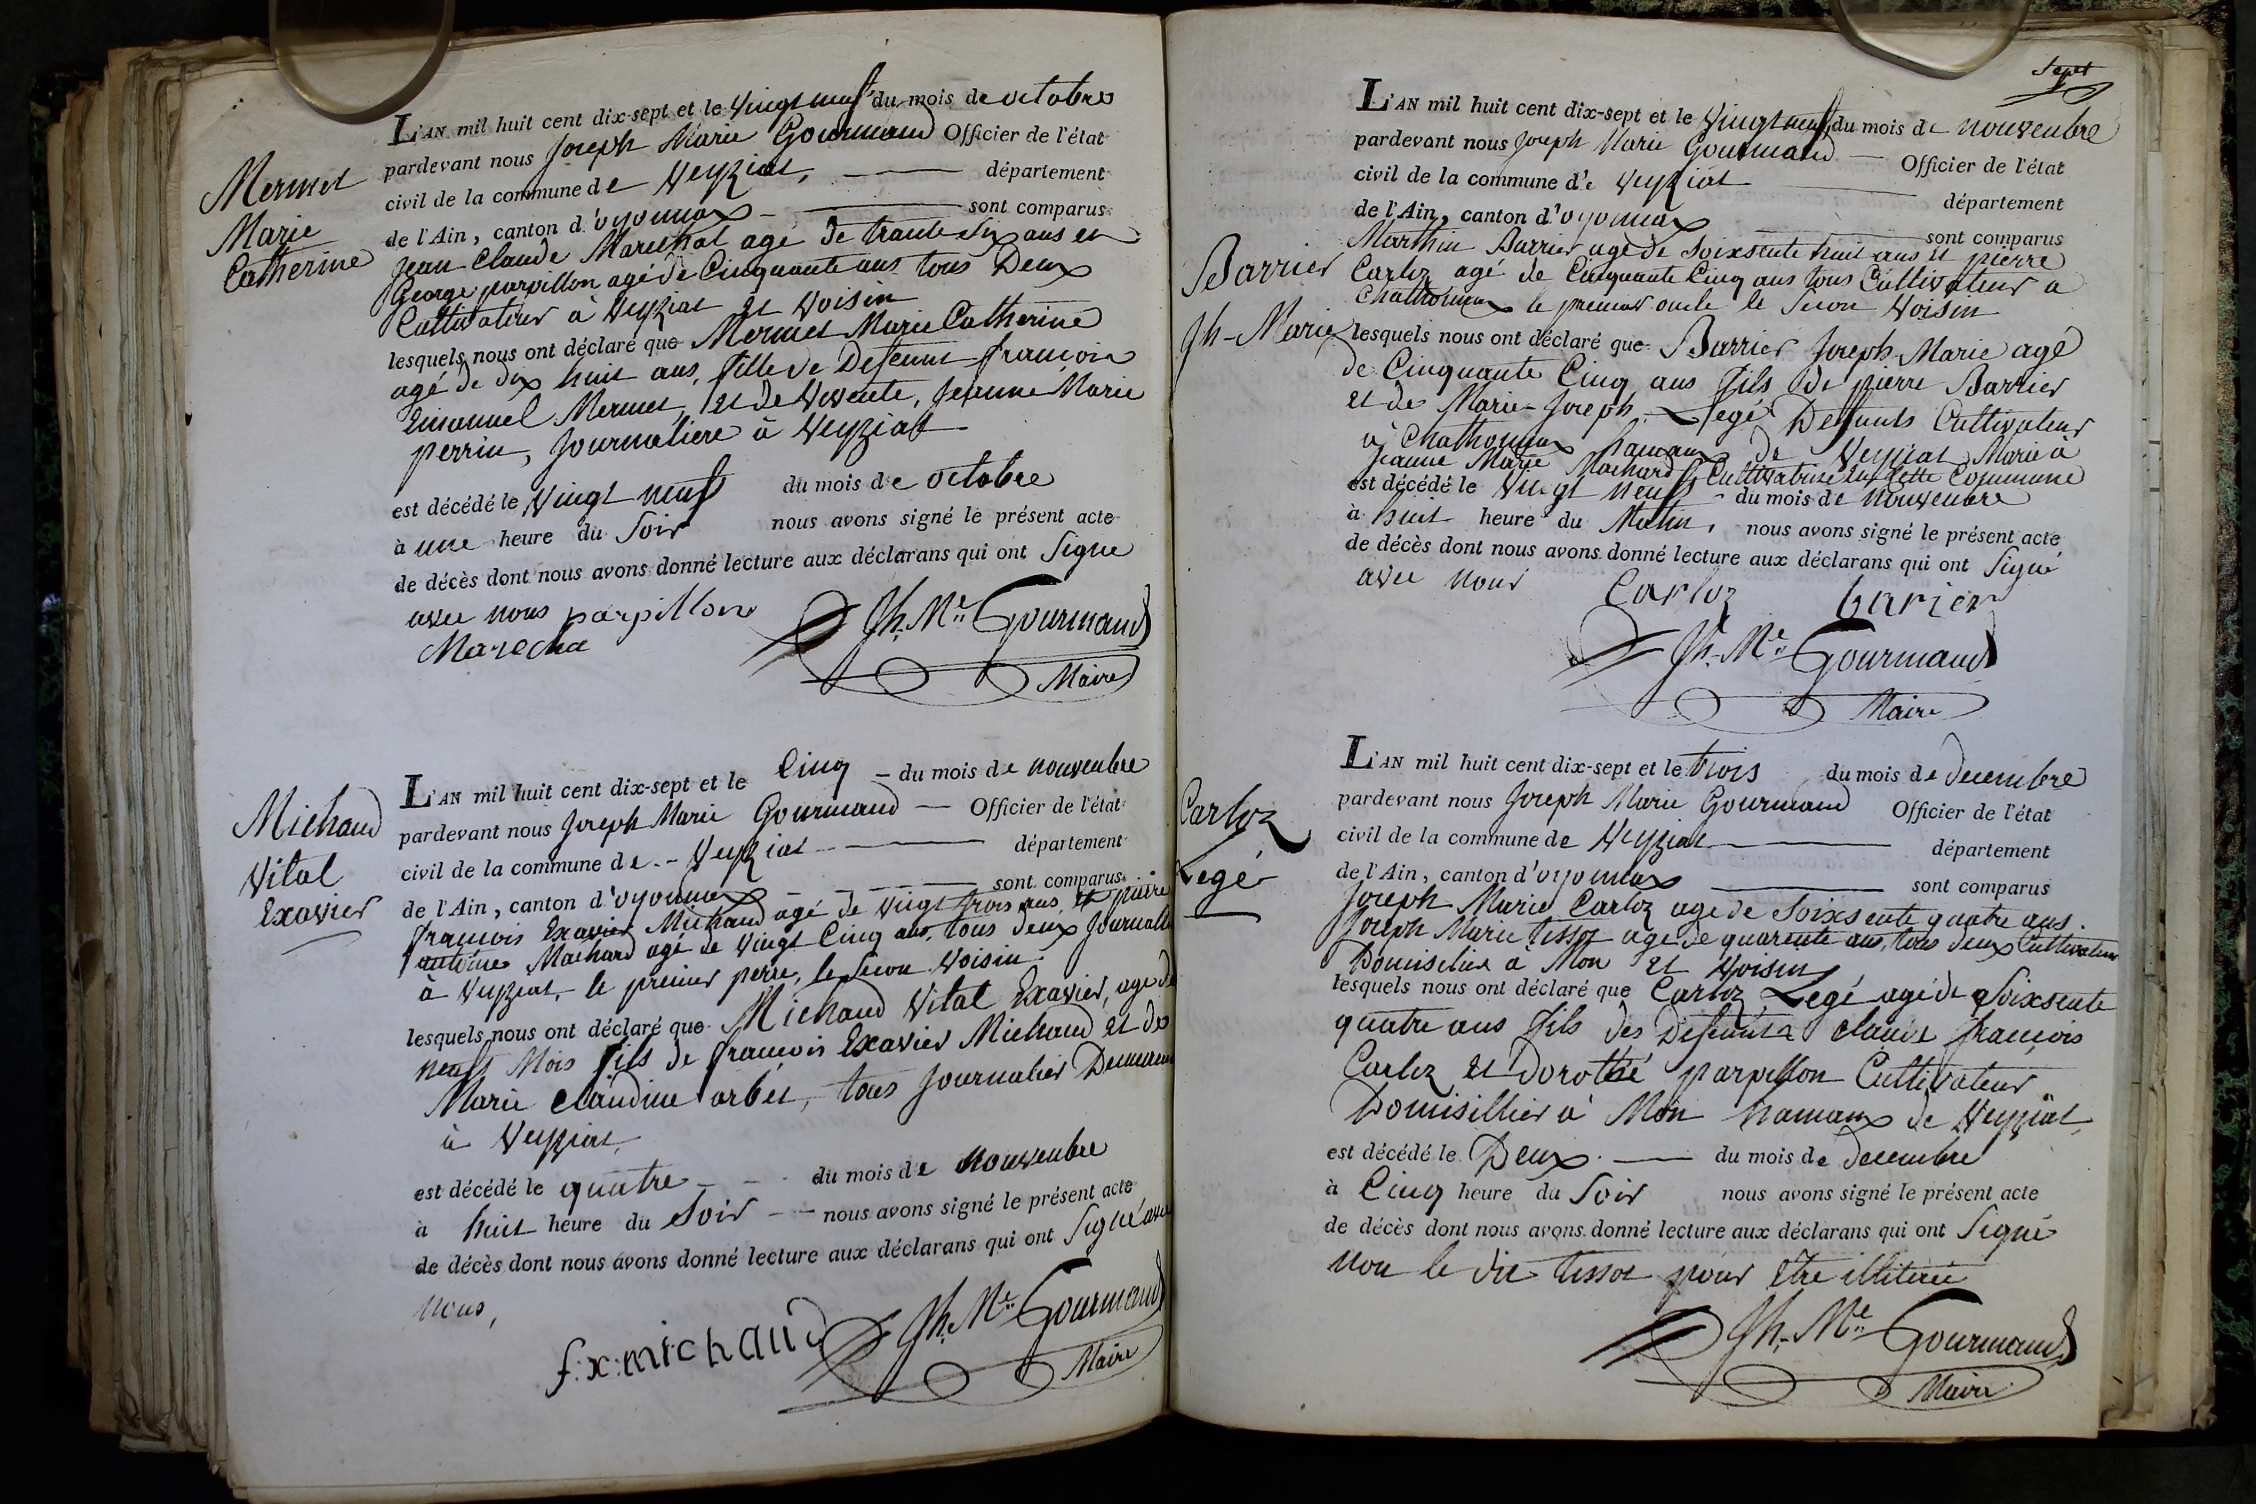 Mermet
Marie
Catherine
L'AN mil huit cent dix-sept et le vingt neuf du mois de octobre
pardevant nous Joseph Marie Gourmand Officier de l'état
civil de la commune de Veyziat, département
de l'Ain, canton d'oyonnax sont comparus
Jean Claude Marechal agé de trante six ans et
George parpillon agé de Cinquante ans tous Deux
Cultivateur à Veyziat et Voisin
lesquels nous ont déclaré que Mermet Marie Catherine
agé de dix huit ans, fille de Defeunt françois
Emanuel Mermet, et de Vivente, Jeanne Marie
perrin, Journaliere à Veyziat
est décédé le vingt neuf du mois de octobre
à une heure du Soir nous avons signé le présent acte
de décès dont nous avons donné lecture aux déclarans qui ont Signé
avec nous parpillon
Marecha
Jh. Me. Gourmand
Maire
Michaud
Vital
Exavier
L'AN mil huit cent dix-sept et le Cinq du mois de nouvenbre
pardevant nous Joseph Marie Gourmand Officier de l'état
civil de la commune de Veyziat département
de l'Ain, canton d'oyonnax sont comparus
françois Exavier Michaud agé de vingt trois ans et pierre
antoine Machard agé de vingt Cinq ans, tous deux Journalie
à Veyziat, le premier perre, le Secon Voisin
lesquels nous ont déclaré que Michaud Vital Exavier, age de
neuf Mois fils de françois Exavier Michaud et de
Marie Claudine arbet, tous Journalier
à Veyziat,
est décédé le quatre du mois de nouvenbre
à huit heure du Soir nous avons signé le présent acte
de décès dont nous avons donné lecture aux déclarans qui ont Signé avec
nous,
f:x:michaud
Jh. Me. Gourmand
Maire
Sept
Barrier
Jh-Marie
L'AN mil huit cent dix-sept et le Vingt neuf du mois de nouvenbre
pardevant nous Joseph Marie Gourmand Officier de l'état
civil de la commune d'e Veyziat département
de l'Ain, canton d'oyonnax sont comparus
Marthin Barrier age de Soixsente huit ans et pierre
Carloz agé de Cinquante Cinq ans tous Cultivateur a
Chathonnax le premier oncle le Secon Voisin
lesquels nous ont déclaré que Barrier Joseph Marie agé
de Cinquante Cinq ans fils de pierre Barrier
et de Marie-Joseph Legé Deffunts Cultivateur
à Chathonnax hamaux de Veyziat Marié à
Jeanne Marie Machard Cultivatrise cette Commune
est décédé le Vingt neuf du mois de nouvenbre
à huit heure du Matin, nous avons signé le présent acte
de décès dont nous avons donné lecture aux déclarans qui ont Signé
avec nous Carloz barier
Jh. Me. Gourmand
Maire
Carloz
Legé
L'AN mil huit cent dix-sept et le trois du mois de decembre
pardevant nous Joseph Marie Gourmand Officier de l'état
civil de la commune de Veyziat département
de l'Ain, canton d'oyonnax sont comparus
Joseph Marie Carloz age de Soixsente quatre ans.
Joseph Marie tissot age de quarente ans, tous deux Cultivateur
à Mon et Voisin
lesquels nous ont déclaré que Carloz Legé agé de Soixsente
quatre ans fils des Defeunts Claude françois
Carloz et Dorothé parpillon Cultivateur
Domisillier à Mon hamaux de Veyziat,
est décédé le Deux du mois de decembre
à Cinq heure du Soir nous avons signé le présent acte
de décès dont nous avons donné lecture aux déclarans qui ont Signé
non le dit tissot pour être
Jh. Me. Gourmand
Maire